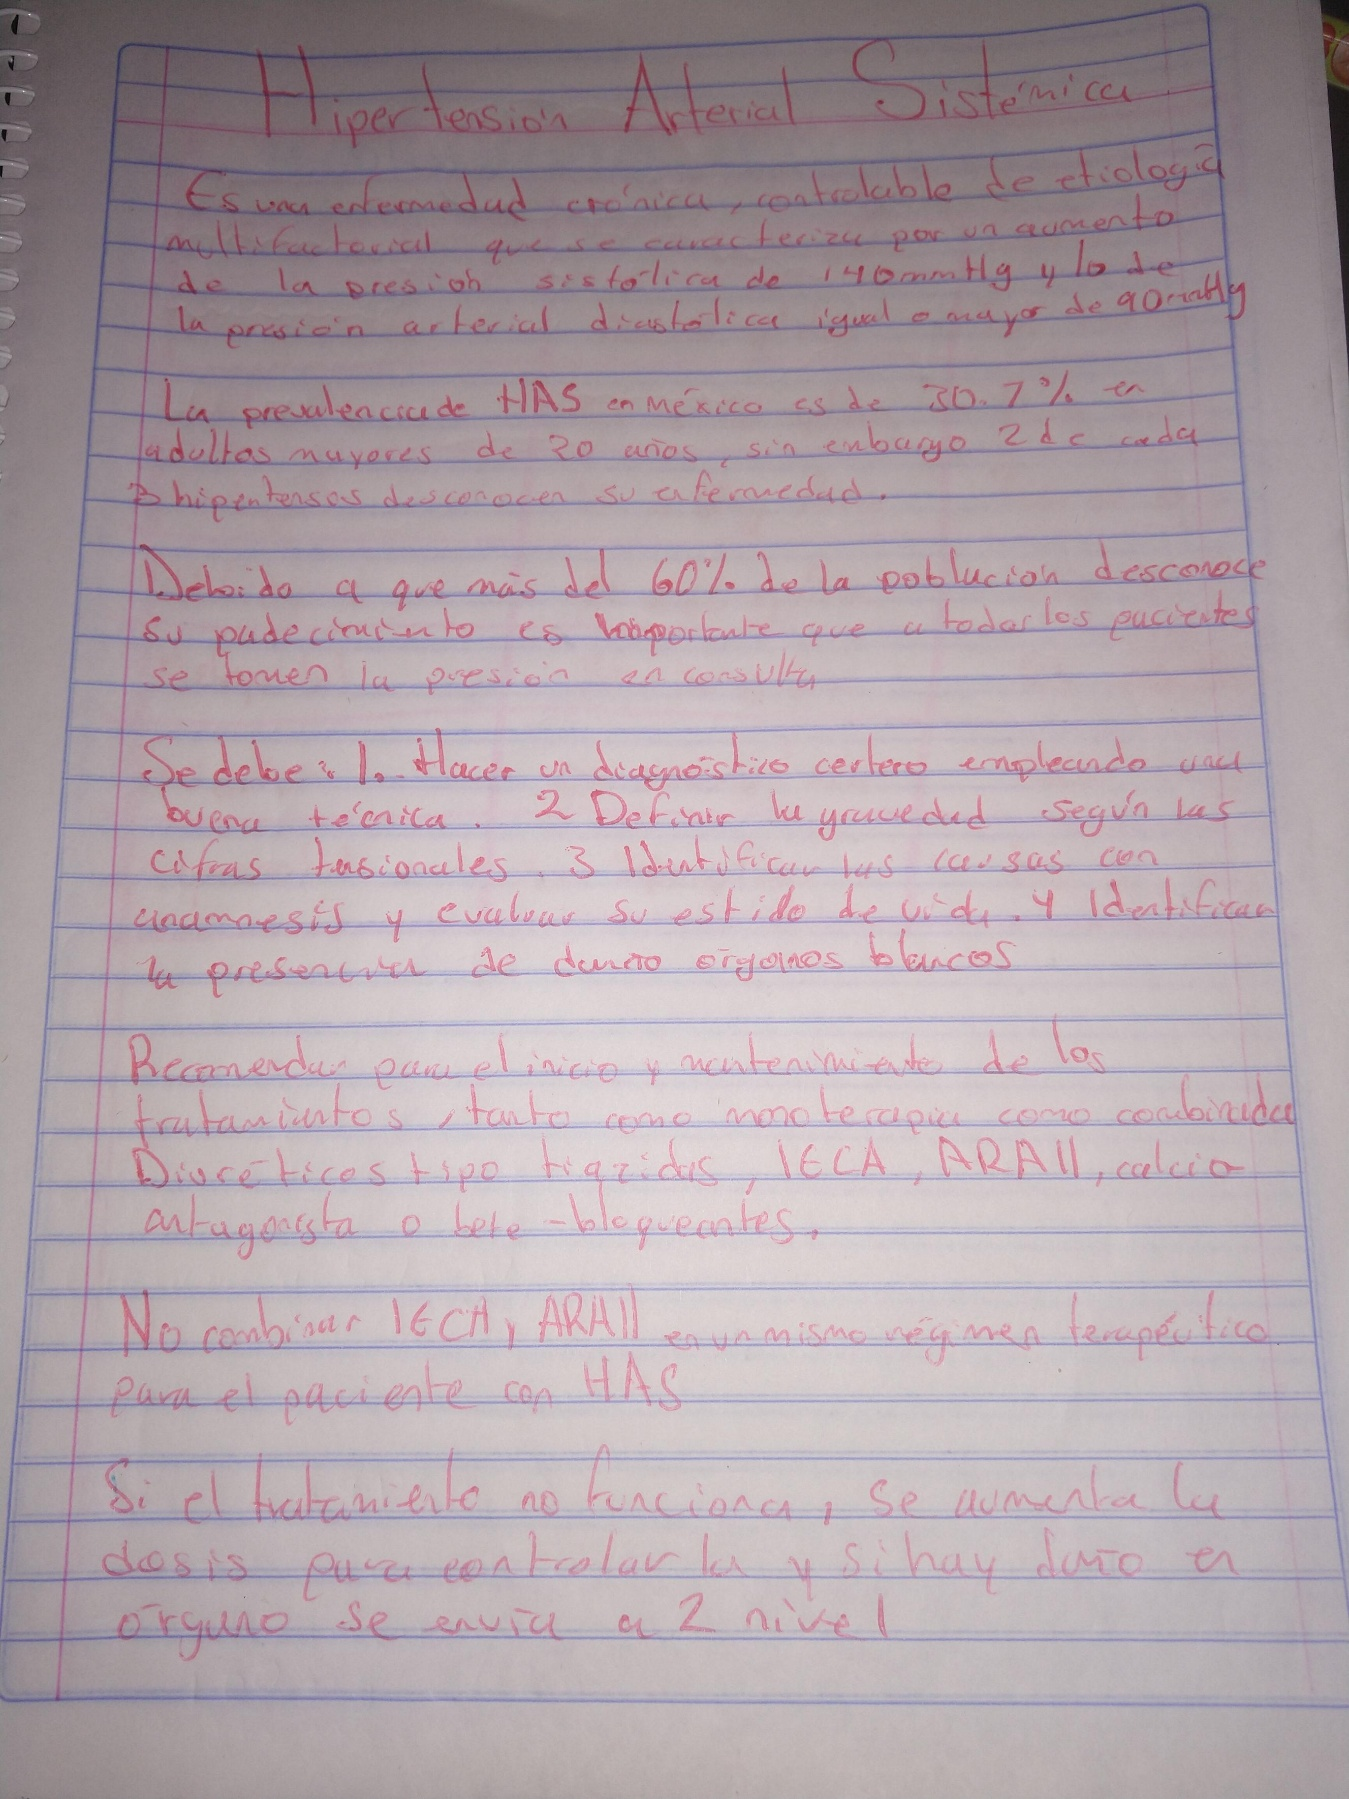 Hipertensión Arterial Sistémica
Es una enfermedad crónica, controlable de etiología
multifactorial que se caracteriza por un aumento
de la presión sistólica de 140mmHg y lo de
la presión arterial diastólica igual o mayor de 90mmHg
La prevalencia de HAS en méxico es de 30.7% en
adultos mayores de 20 años, sin embargo 2 de cada
3 hipertensos desconocen su enfermedad.
Debido a que más del 60% de la población desconoce
su padecimiento es importante que a todos los pacientes
se tomen la presión en consulta
Se debe: 1. Hacer un diagnóstico certero empleando una
buena técnica. 2 Definir la gravedad según las
cifras tensionales. 3 Identificar las causas con
anamnesis y evaluar su estido de vida. 4 Identificar
la presencia de daño órganos blancos
Recomendar para el inicio y mantenimiento de los
tratamientos, tanto como monoterapia como combinada
Diuréticos tipo tiazidas, IECA, ARAII, calcio
antagonista o beta-bloqueantes.
No combinar IECA, ARAII en un mismo régimen terapéutico
para el paciente con HAS
Si el tratamiento no funciona, se aumenta la
dosis para controlar la y si hay daño en
órgano se envía a 2 nivel